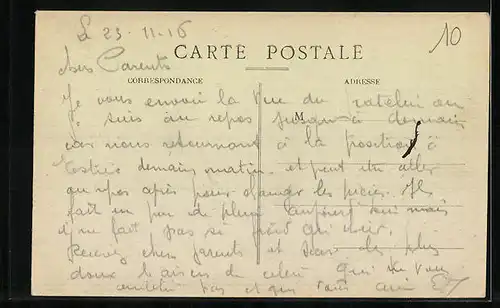 Le 23-11-16
10
CARTE POSTALE
Chers Parents
CORRESPONDANCE ADRESSE
Je vous envoie la vue du ou
M
Je suis au repos jusqu'à demain
car nous retournant à la position à
demain matin. et peut etre aller
au repos après pour changer les pieces. Il
fait un peu de pluie aujourd'hui mais
il ne fait pas si froid qu'hier.
Recevez chers parents et les plus
doux baisers de celui qui ne vous
oublie pas et qui vous aime